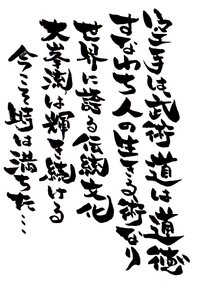 空手は武術 道は道徳
すなわち人の生きる術なり
世界に誇る伝統文化
大峯流は輝き続ける
今こそ時は満ちた…